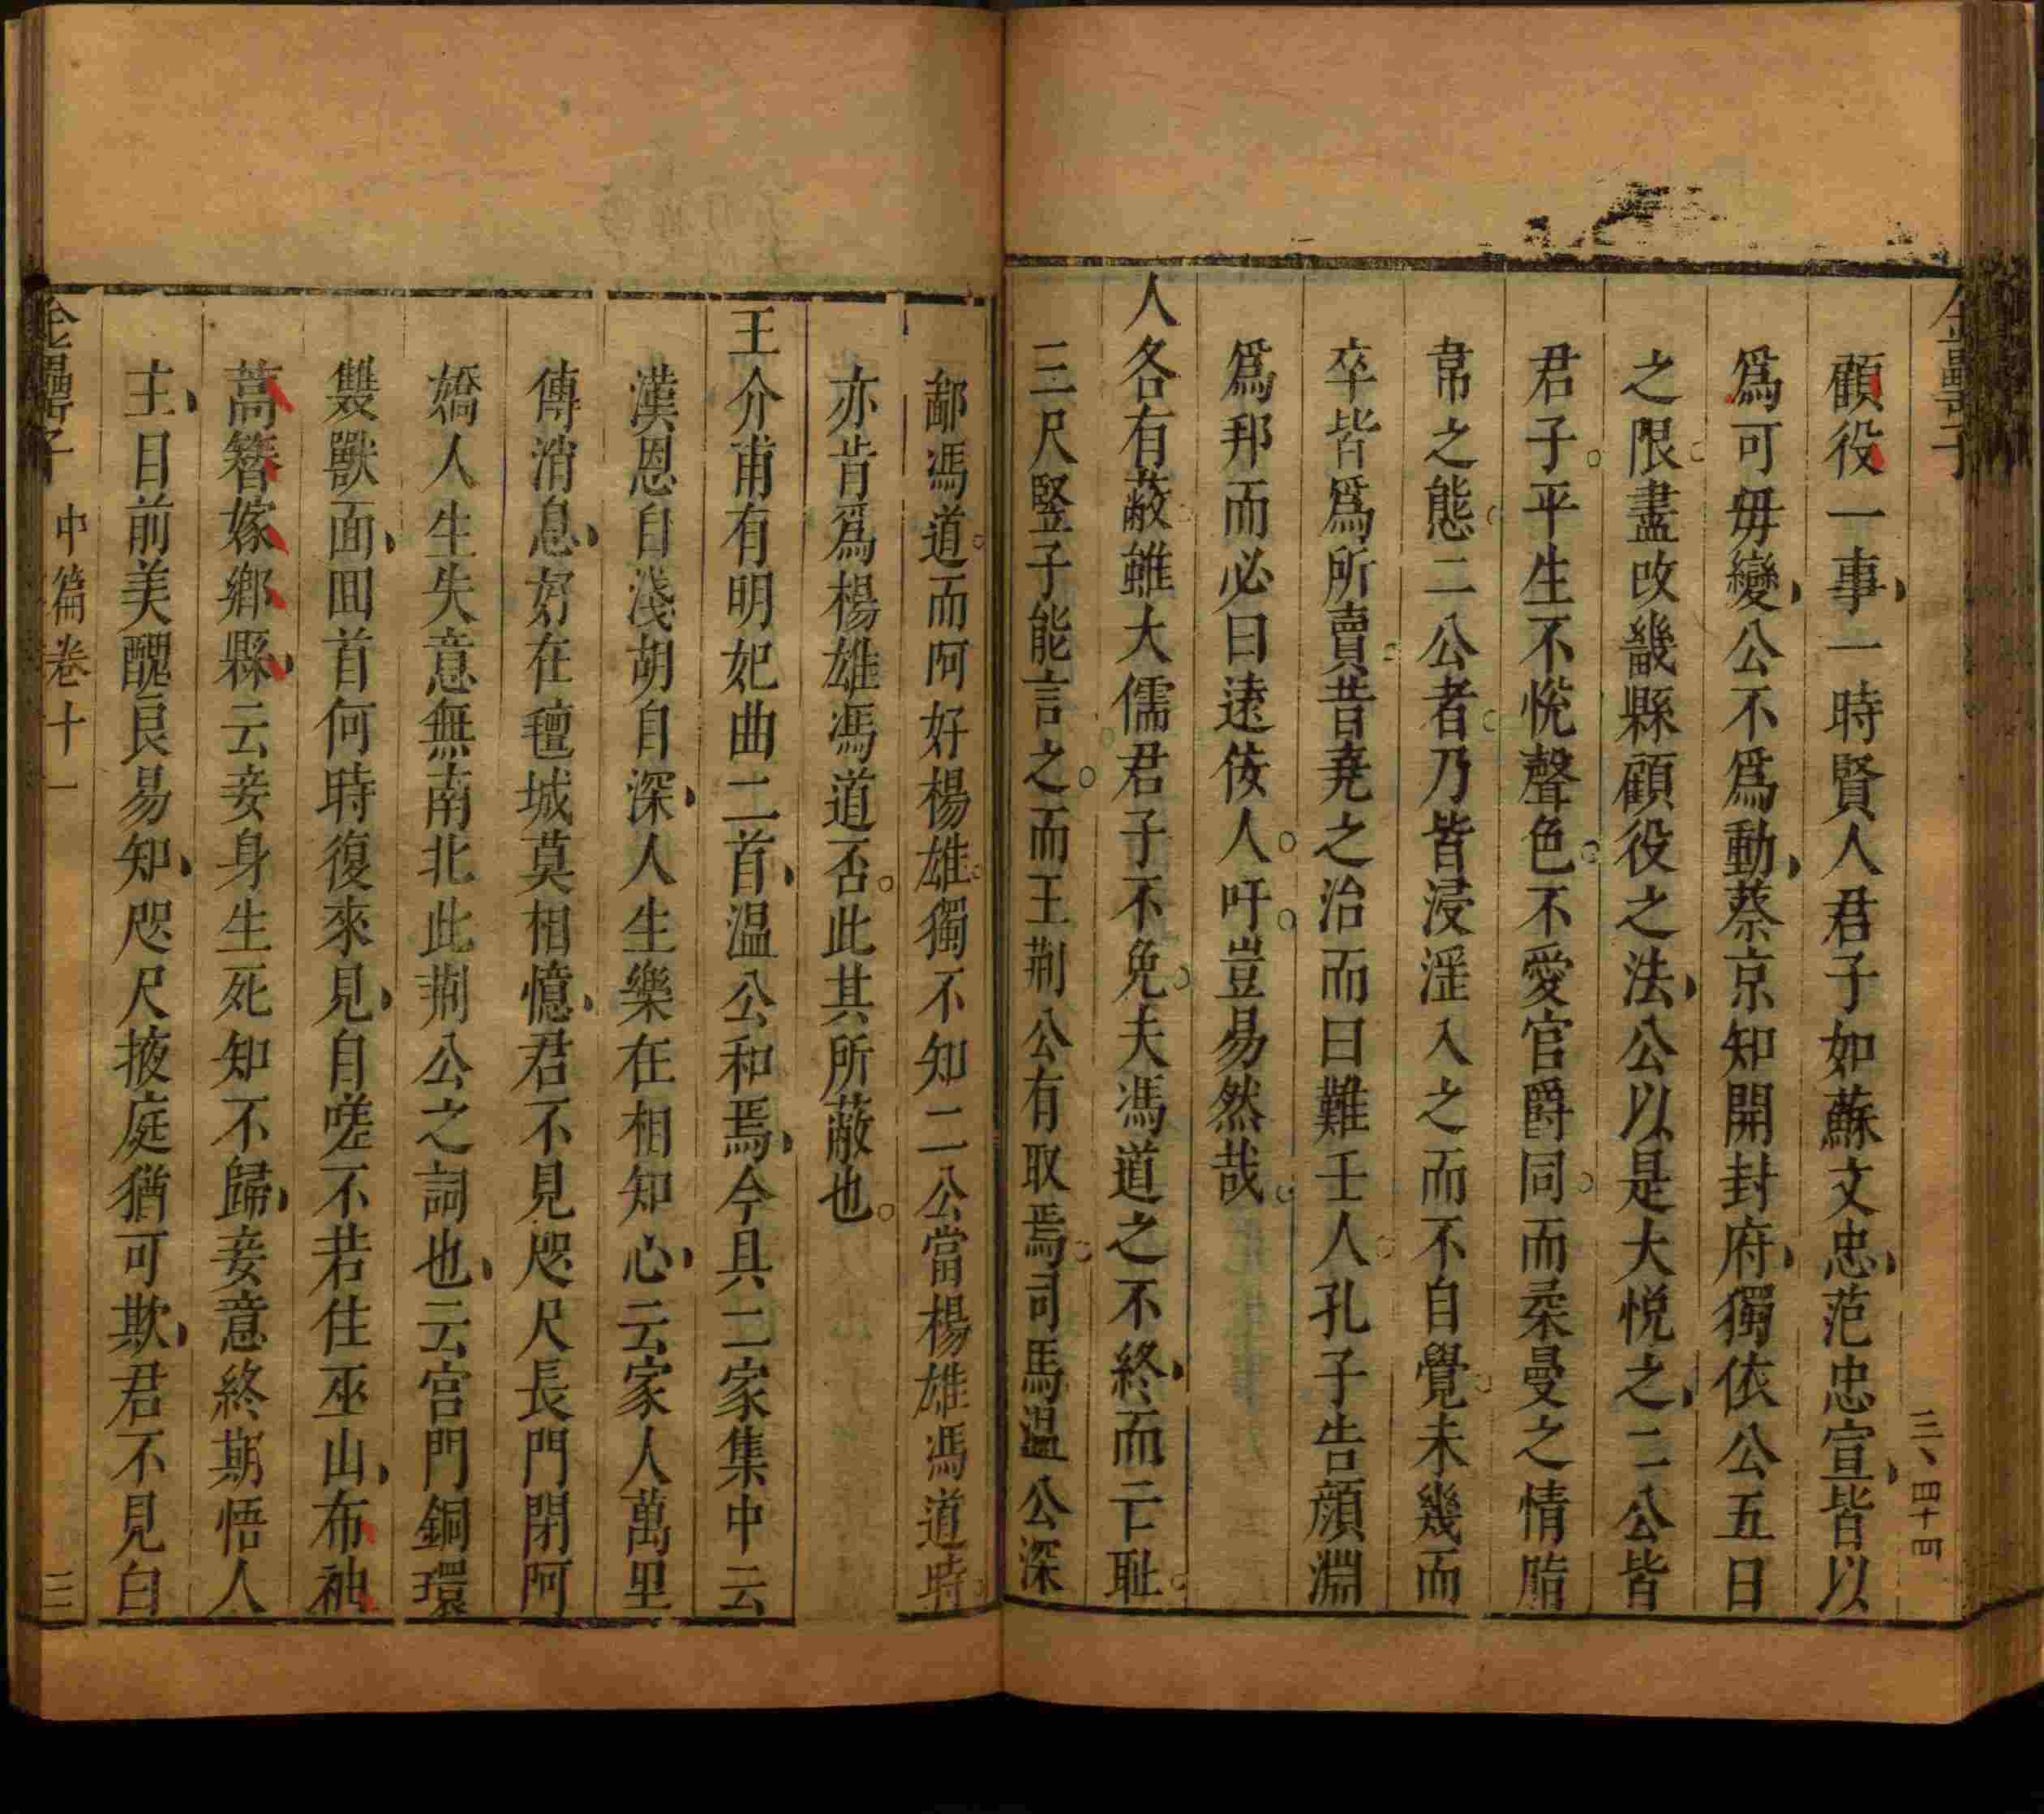 金罍子
三、四十四
顧役一事一時賢人君子如蘇文忠范忠宣皆以
爲可毋變公不爲動蔡京知開封府獨依公五日
之限盡改畿縣顧役之法公以是大悅之二公皆
君子平生不悅聲色不愛官爵同而柔曼之情脂
韋之態二公者乃皆浸淫入之而不自覺未幾而
卒皆爲所賣昔堯之治而曰難壬人孔子告顔淵
爲邦而必曰遠佞人吁豈易然哉
人各有蔽雖大儒君子不免夫馮道之不終而亡耻
三尺竪子能言之而王荆公有取焉司馬温公深
鄙馮道而阿好楊雄獨不知二公當楊雄馮道時
亦肯爲楊雄馮道否此其所蔽也
王介甫有明妃曲二首温公和焉今具二家集中云
漢恩自淺胡自深人生樂在相知心云家人萬里
傳消息好在氊城莫相憶君不見咫尺長門閉阿
嬌人生失意無南北此荆公之詞也云宫門銅環
雙獸面囬首何時復來見自嗟不若住巫山布袖
蒿簪嫁鄉縣云妾身生死知不歸妾意終期悟人
主目前美醜良易知咫尺掖庭猶可欺君不見白
金罍子 中篇卷十一 三